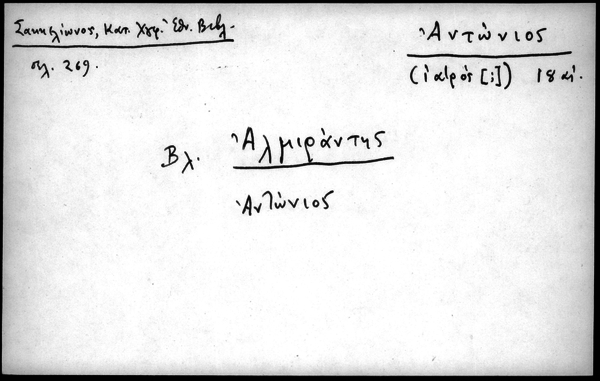 Σακκελίωνος, Κατ. Χγρ. Ἐθν. Βιβλ.
σελ. 269.
Ἀντώνιος
(ἰατρός [;]) 18 αἰ.
Βλ. Ἀλμιράντης
Ἀντώνιος